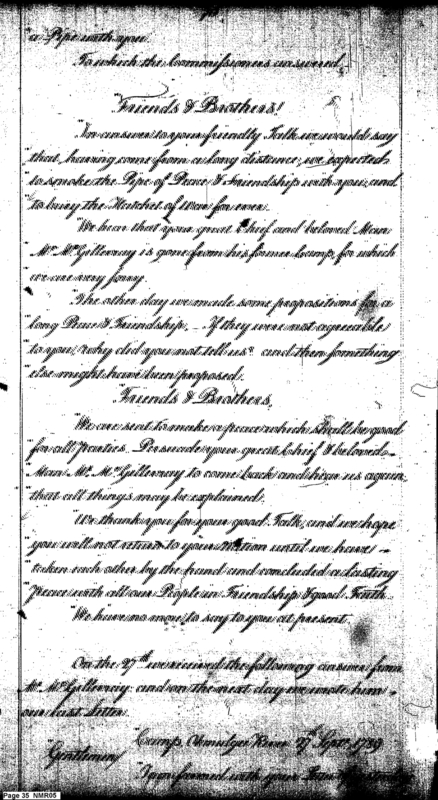 "a Pipe with you.
To which the Commissioners answered,
"Friends & Brothers!
"In answer to your friendly Talk we would say
"that, having come from a long distance, we expected
"to smoke the Pipe of Peace & Friendship with you, and
"to bury the Hatchet of War for ever.
"We hear that your great Chief and beloved Man
"Mr. McGillevray is gone from his former Camp, for which
"we are very sorry.
"The other day we made some propositions for a
"long Peace & Friendship, – If they were not agreeable
"to you, why did you not tell us? and then something
"else might have been proposed.
"Friends & Brothers,
"We are sent to make a peace which shall be good
"for all parties. Persuade your great Chief & beloved –
"Man Mr. McGillevray to come back and hear us again,
"that all things may be explained.
"We thank you for your good Talk, and we hope
"you will not return to your Nation until we have –
"taken each other by the hand and concluded a lasting
"peace with all our People in Friendship & good Faith.
"We have no more to say to you at present."
On the 27th we received the following answer from
Mr. McGillevray: and on the next day we wrote him –
our last letter.
"Camp, Okmulgee River 27th Septr. 1789
"Gentlemen,
"I am favored with your Letter of yesterday
Page 35 NMR05